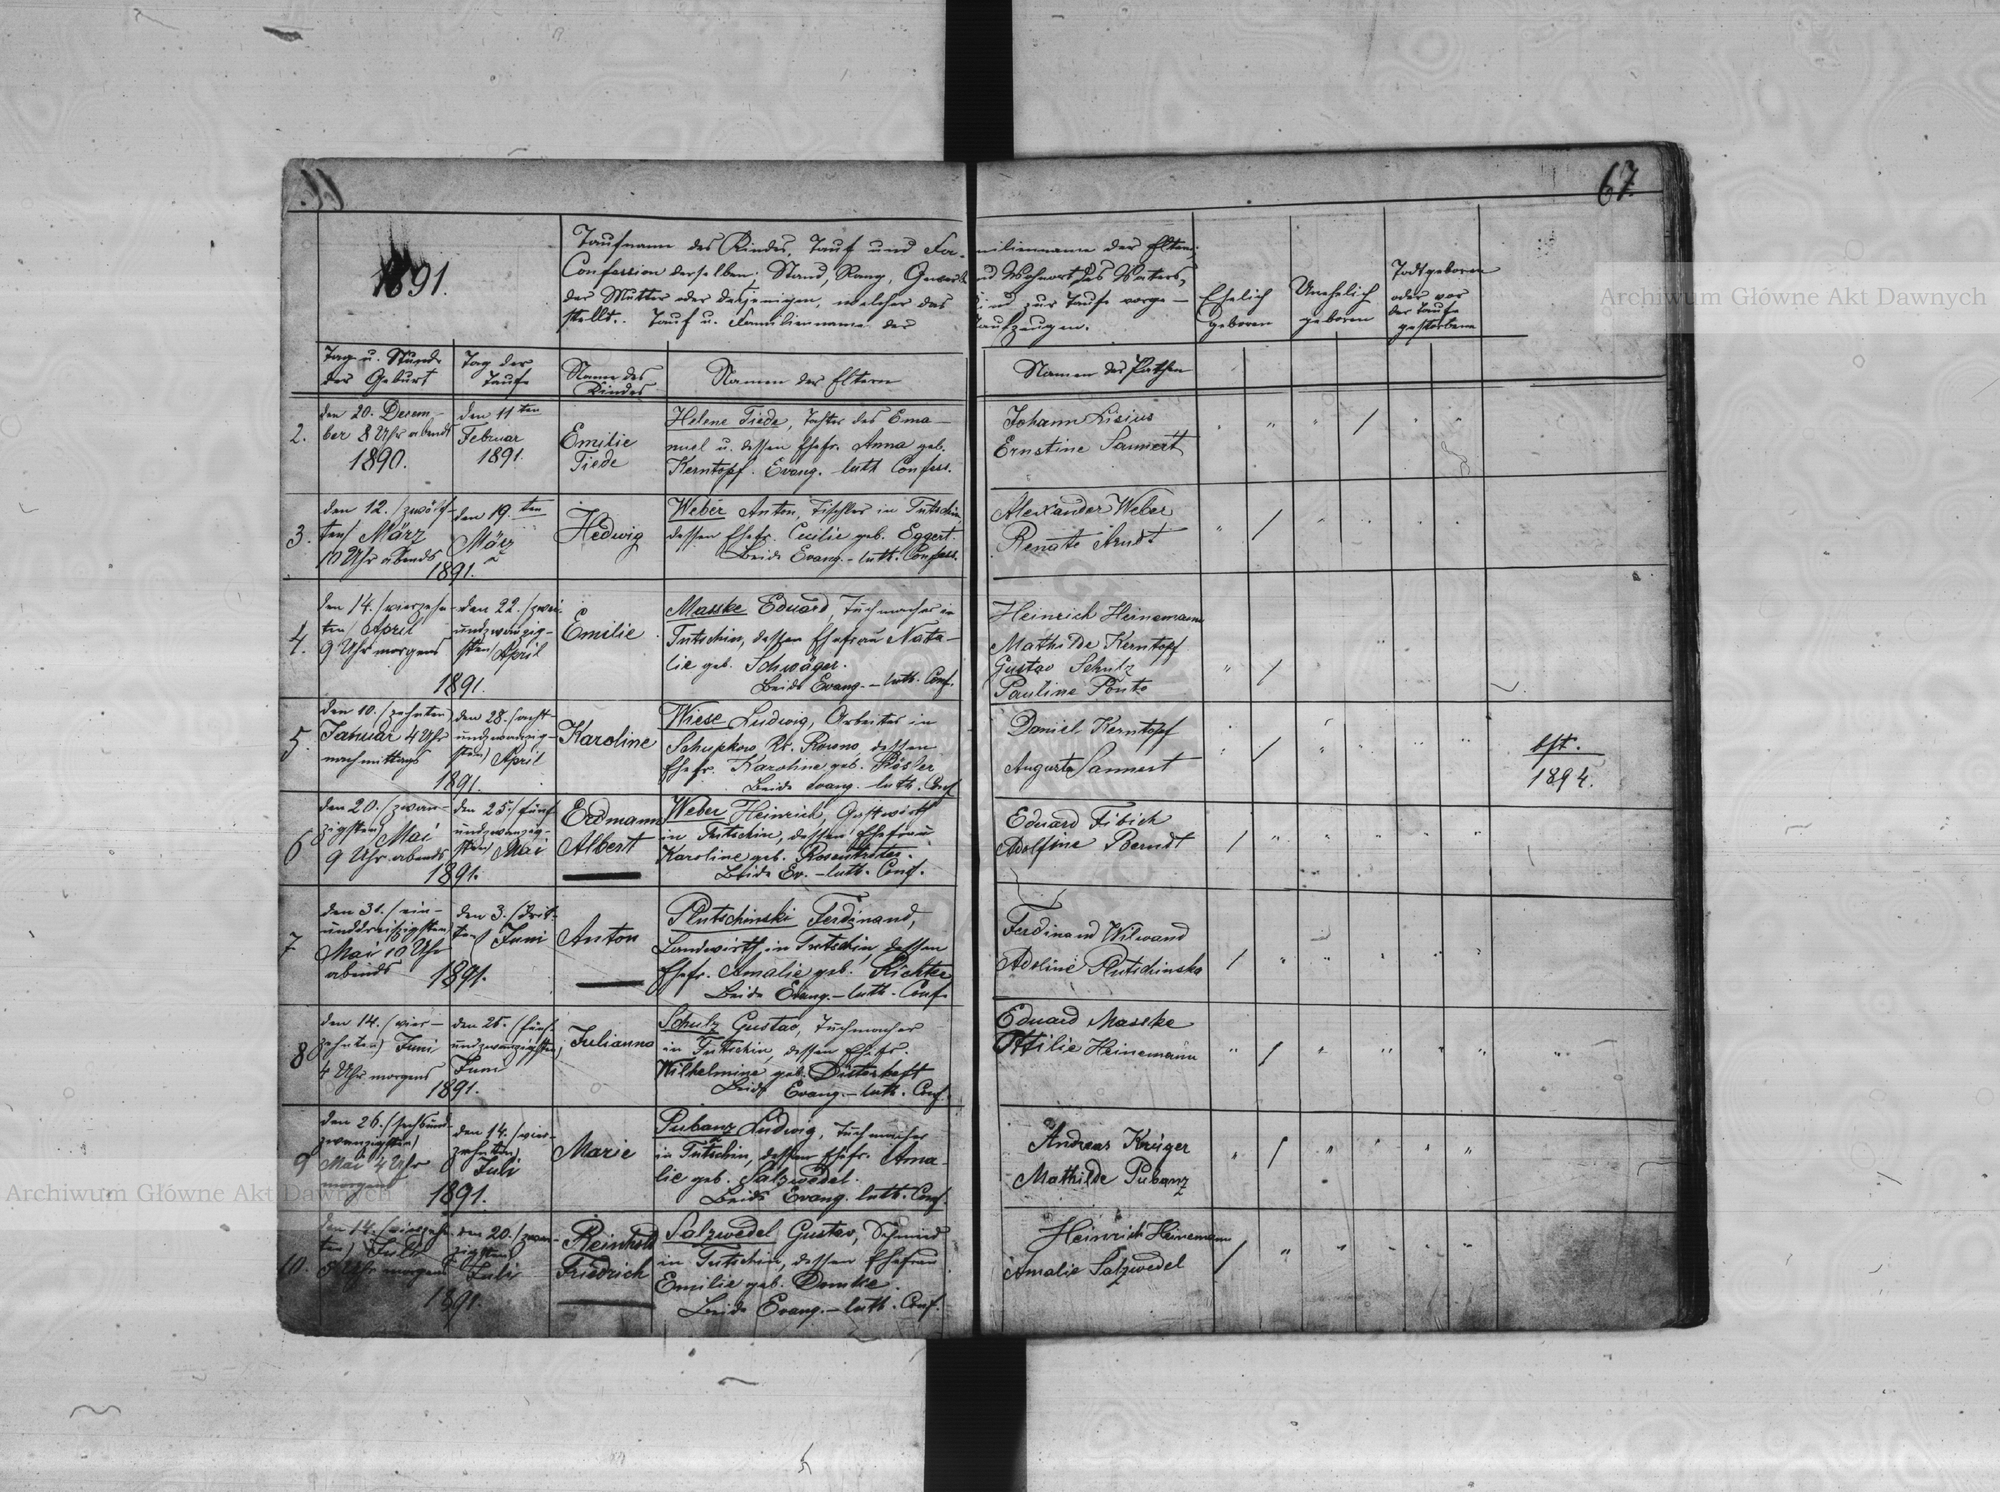 67.
1891.
Taufname des Kindes, Tauf und Fa- milienname der Eltern,
Confession derselben; Stand, Rang, Gewerb und Wohnort des Vaters,
der Mutter oder desjenigen, welcher das Kind zur Taufe vorge-
stellt. Tauf u. Familienname der Taufzeugen.
Ehelich
geboren
Unehelich
geboren
Todtgeboren
oder vor
der Taufe
gestorbene
Tag u. Stunde
der Geburt
Tag der
Taufe
Name des
Kindes
Namen der Eltern
Namen der Pathen
2.
den 20. Decem-
ber 8 Uhr abends
1890.
den 11ten
Februar
1891.
Emilie
Tiede
Helene Tiede, Tochter des Ema-
nuel u. dessen Ehefr. Anna geb.
Kerntopf. Evang. luth Confess.
Johann Lisius
Ernstine Sannert
3.
den 12. (zwölf-
ten) März
10 Uhr abends
1891.
den 19.ten
März
Hedwig
Weber Anton, Tischler in Tutschin,
dessen Ehefr. Cecilie geb. Eggert.
Beide Evang.-luth. Confess.
Alexander Weber
Renate Arndt
4.
den 14. (vierzehn-
ten) April
9 Uhr morgens
1891.
den 22. (zwei-
undzwanzig-
sten) April
Emilie
Masske Eduard, Tuchmacher in
Tutschin, dessen Ehefrau Nata-
lie geb. Schwäger.
Beide Evang.-luth. Conf.
Heinrich Heinemann
Mathilde Kerntopf
Gustav Schulz
Pauline Ponto
5.
den 10. (zehnten)
Januar 4 Uhr
nachmittags
1891.
den 28. (acht-
undzwanzig-
sten) April
Karoline
Wiese Ludwig, Arbeiter in
Schupkow, Kr. Rowno, dessen
Ehefr. Karoline geb. Rösler
Beide evang.-luth. Conf
Daniel Kerntopf
Auguste Sannert
1894.
6
den 20. (zwan-
zigsten) Mai
9 Uhr abends
1891.
den 25. (fünf-
undzwanzig-
sten) Mai
Erdmann
Albert
Weber Heinrich, Gastwirth
in Tutschin, dessen Ehefrau
Karoline geb. Rosentreter.
Beide Ev.-luth. Conf.
Eduard Fibich
Adolfine Berndt
7
den 31. (ein-
unddreißigsten)
Mai 10 Uhr
abends
1891.
den 3. (drit-
ten) Juni
Anton
Plutschinski Ferdinand,
Landwirth in Tutschin, dessen
Ehefr. Amalie geb. Richter
Beide Evang.-luth. Conf.
Ferdinand Wilwand
Adoline Plutschinska
8
den 14. (vier-
zehnten) Juni
4 Uhr morgens
1891.
den 25. (fünf-
undzwanzigsten)
Juni
Julianna
Schulz Gustav, Tuchmacher
in Tutschin, dessen Ehefr.
Wilhelmine geb. Düsterheft
Beide Evang.-luth. Conf.
Eduard Masske
Ottilie Heinemann
9
den 26. (sechsund-
zwanzigsten)
Mai 4 Uhr
morgens
1891.
den 14. (vier-
zehnten)
Juli
Marie
Pubanz Ludwig, Tuchmacher
in Tutschin, dessen Ehefr. Ama-
lie geb. Salzwedel.
Beide Evang. luth. Conf.
Andreas Krüger
Mathilde Pubanz
10.
den 14. (vierzehn-
ten) Juli
5 Uhr morgens
1891.
den 20. (zwan-
zigsten)
Juli
Reinhold
Friedrich
Salzwedel Gustav, Schmied
in Tutschin, dessen Ehefrau
Emilie geb. Domke.
Beide Evang.-luth. Conf.
Heinrich Heinemann
Amalie Salzwedel
Archiwum Główne Akt Dawnych
Archiwum Główne Akt Dawnych